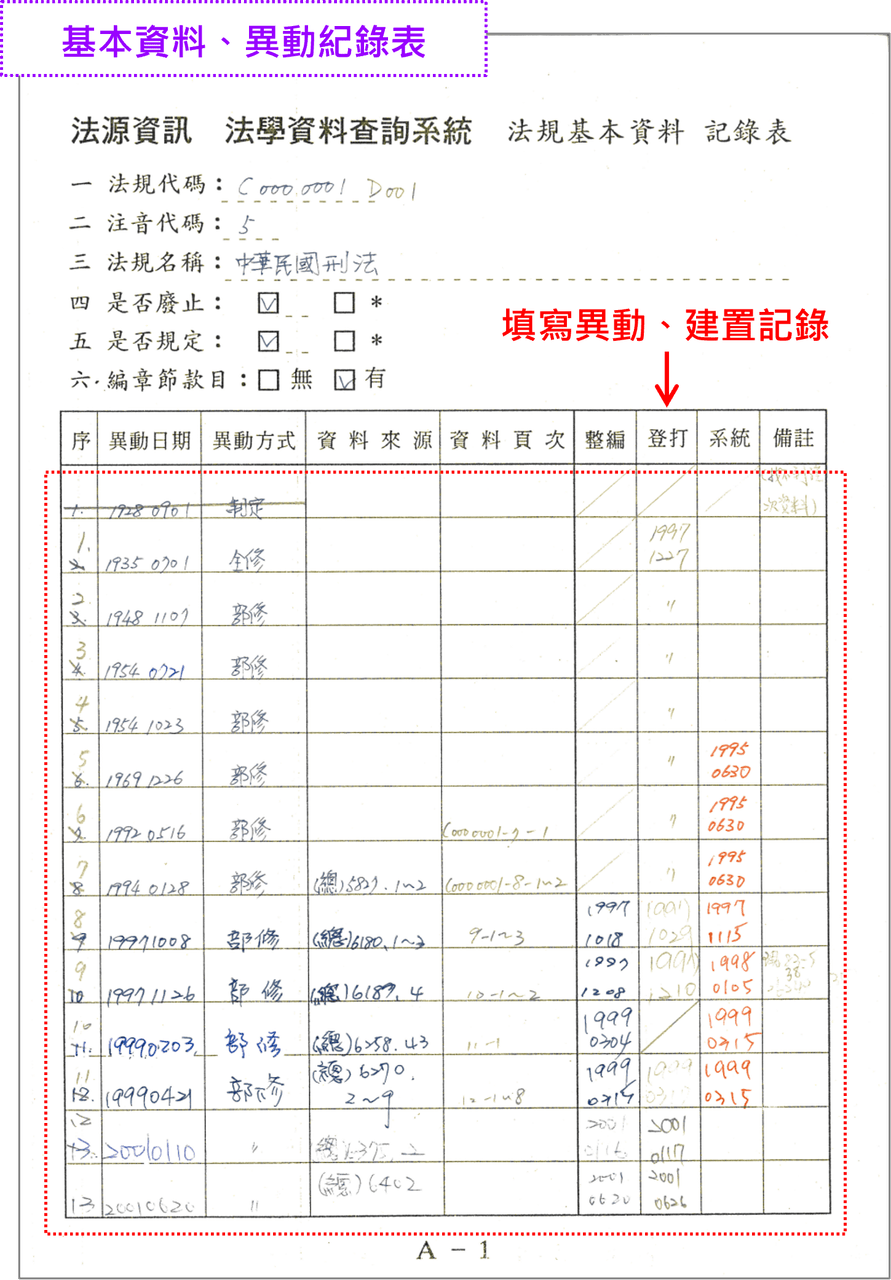 基本資料、異動紀錄表
法源資訊 法學資料查詢系統 法規基本資料 記錄表
一 法規代碼：C0000001 D001
二 注音代碼：5
三 法規名稱：中華民國刑法
四 是否廢止：☑ □ *
五 是否規定：☑ □ *
六.編章節款目：□ 無 ☑ 有
填寫異動、建置記錄
序 異動日期 異動方式 資料來源 資料頁次 整編 登打 系統 備註
1. 1928 0901 制定 次資料)
1. 2. 1935 0701 全修 1997 1227
2 3. 1948 1107 部修 〃
3 4. 1954 0721 部修 〃
4 5. 1954 1023 部修 〃
5 6. 1969 1226 部修 〃 1995 0630
6 7. 1992 0516 部修 C0000001-7-1 〃 1995 0630
7 8. 1994 0128 部修 (總)5827.1~2 C0000001-8-1~2 〃 1995 0630
8 9 19971008 部修 (總)6180.1~3 9-1~3 1997 1018 1997 1029 1997 1115
9 10 19971126 部修 (總)6187.4 10-1~2 1997 1208 1997 1210 1998 0105
10 11. 19990203 部修 (總)6258.43 11-1 1999 0304 1999 0315
11 12. 19990421 部修 (總)6270. 2~9 12-1~8 1999 1999 0315
12 13. 20010110 〃 2001 0116 2001 0117
13 20010620 〃 (總)6402 2001 0620 2001 0626
A - 1